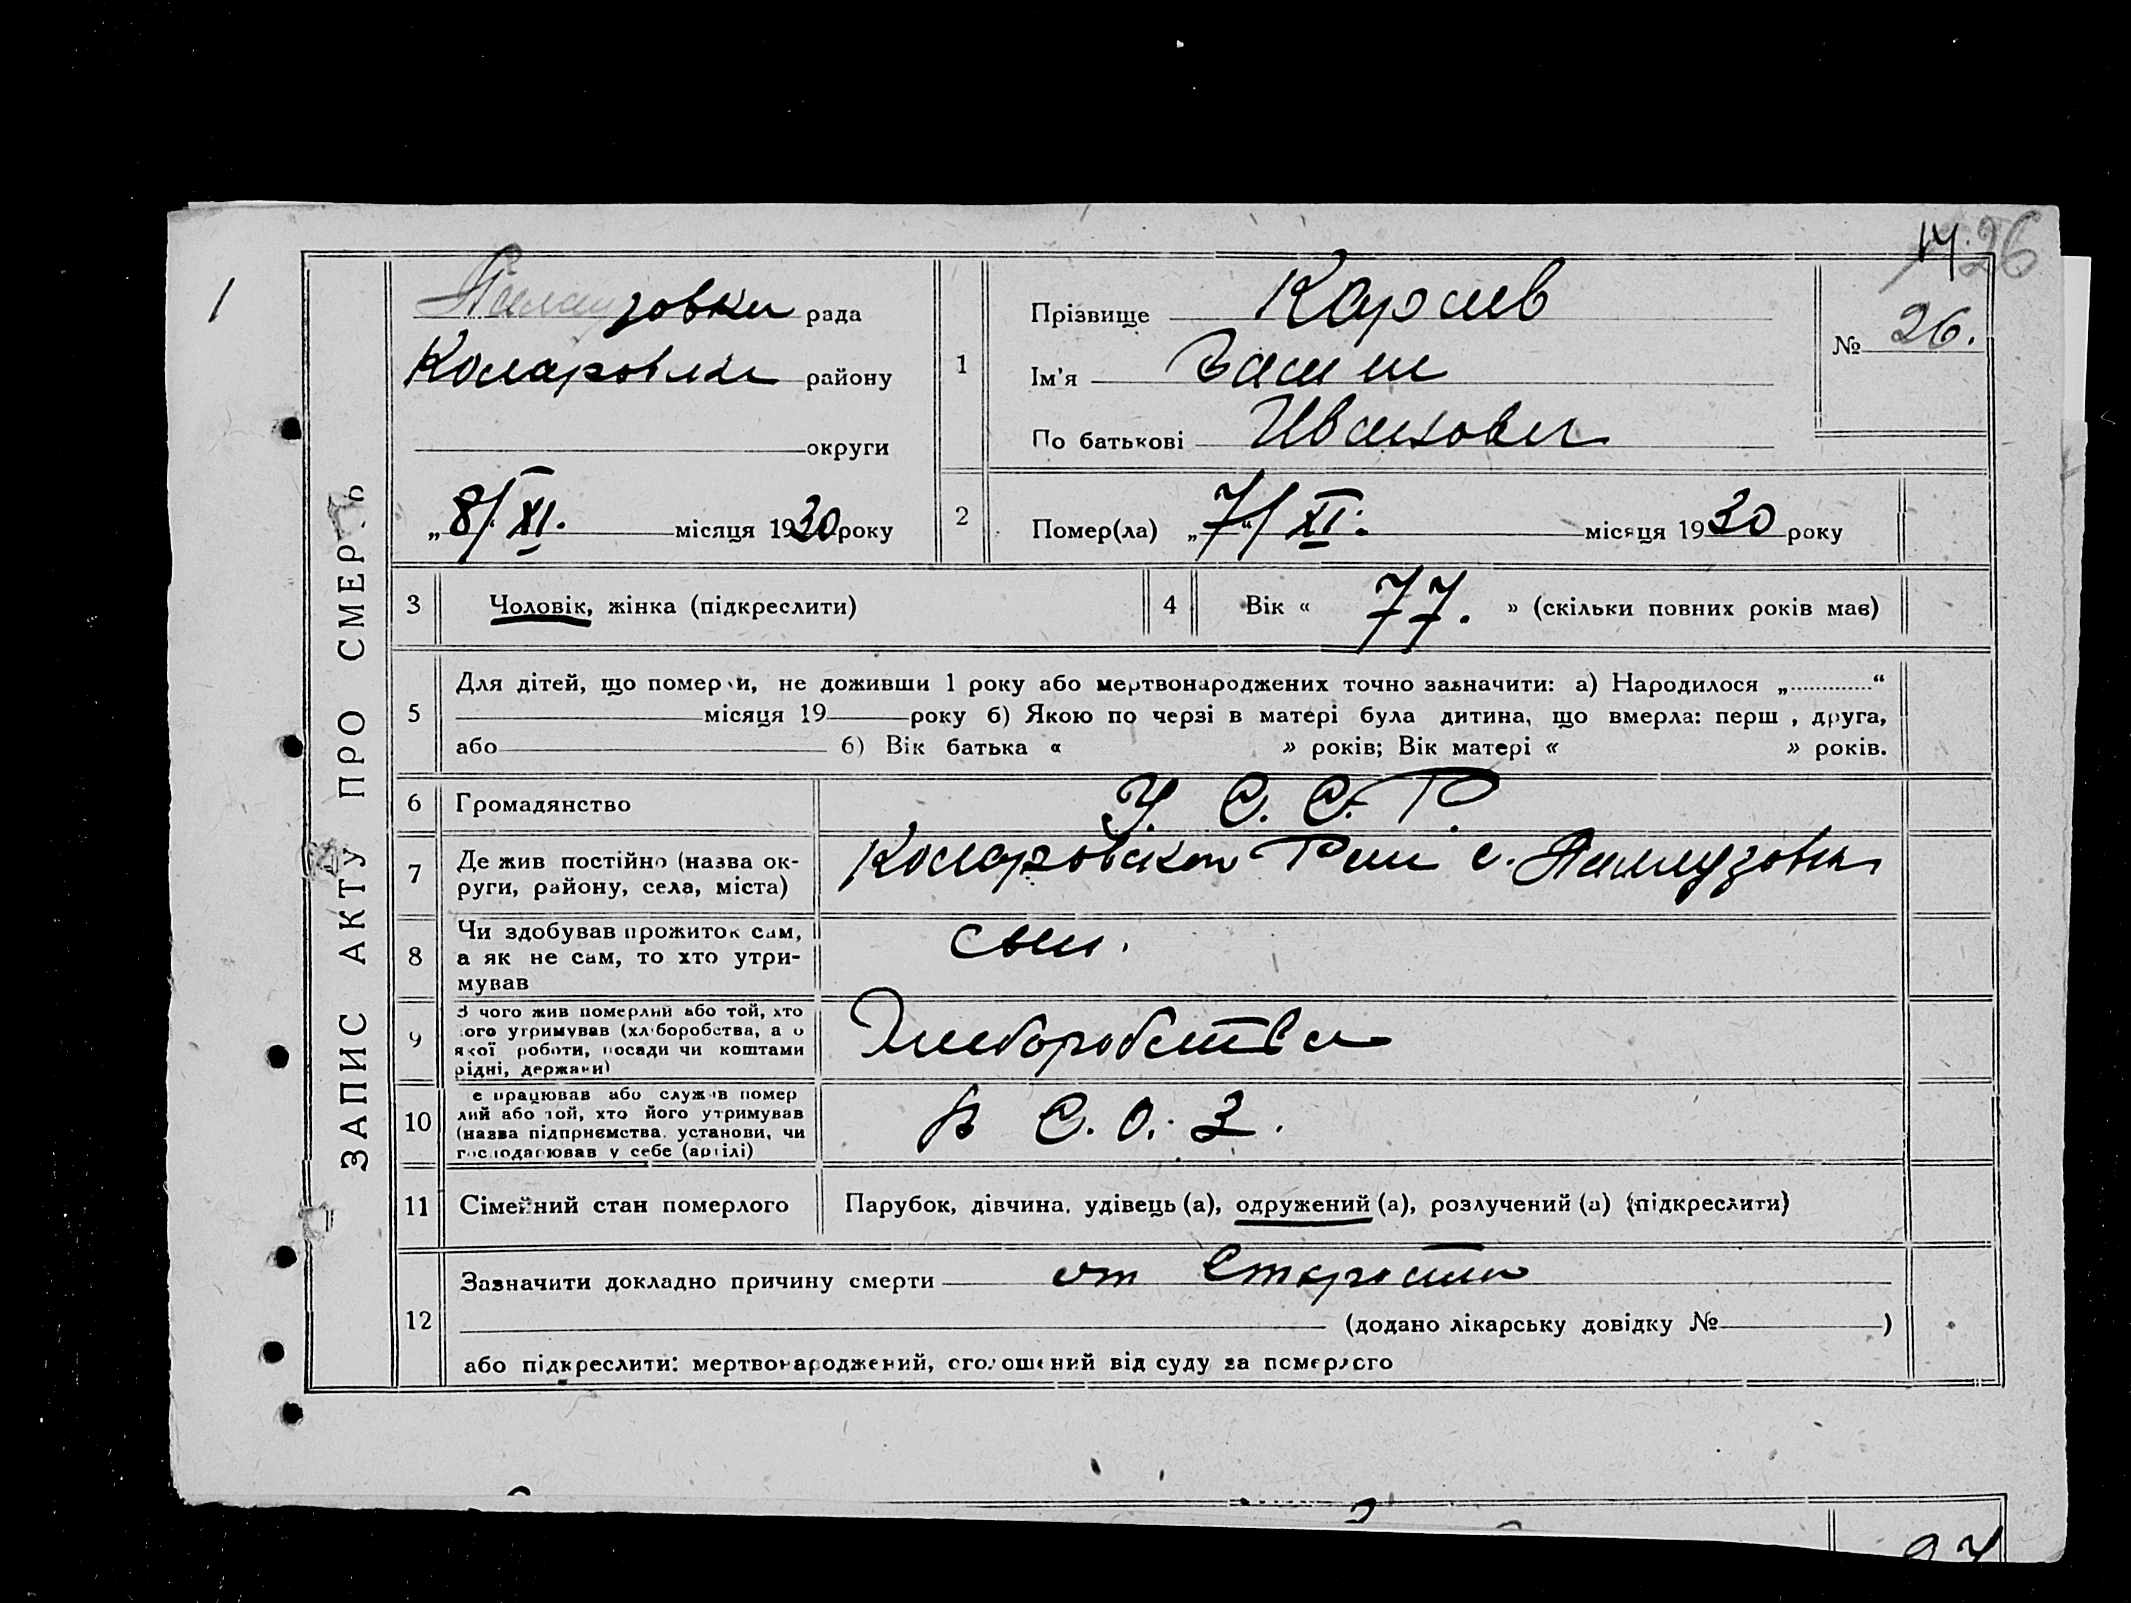 14. 26
1
Палаузовки рада
Коларовки району
округи
„8/XI. місяця 1930 року
ЗАПИС АКТУ ПРО СМЕРТЬ
1
Прізвище Караив
Ім'я Васил
По батькові Иванови
№ 26.
2
Помер(ла) „7“/XI. місяця 1930 року
3 Чоловік, жінка (підкреслити)
4 Вік « 77. » (скільки повних років мав)
5
Для дітей, що померли, не доживши 1 року або мертвонароджених точно зазначити: а) Народилося „ “
місяця 19 року б) Якою по черзі в матері була дитина, що вмерла: перш , друга,
або б) Вік батька « » років; Вік матері « » років.
6 Громадянство У. С. С. Р.
7 Де жив постійно (назва ок-
руги, району, села, міста)
Коларовском Раи с. Палаузовка
8 Чи здобував прожиток сам,
а як не сам, то хто утри-
мував
сын.
9 З чого жив померлий або той, хто
його утримував (хліборобства, а о
якої роботи, посади чи коштами
рідні, держави)
Хлеборобства
10 е працював або служив помер
лий або той, хто його утримував
(назва підприємства, установи, чи
господарював у себе (артілі)
в С. О. З.
11 Сімейний стан померлого Парубок, дівчина, удівець (а), одружений (а), розлучений (а) (підкреслити)
12
Зазначити докладно причину смерти от Старости
(додано лікарську довідку № )
або підкреслити: мертвонароджений, оголошений від суду за померлого